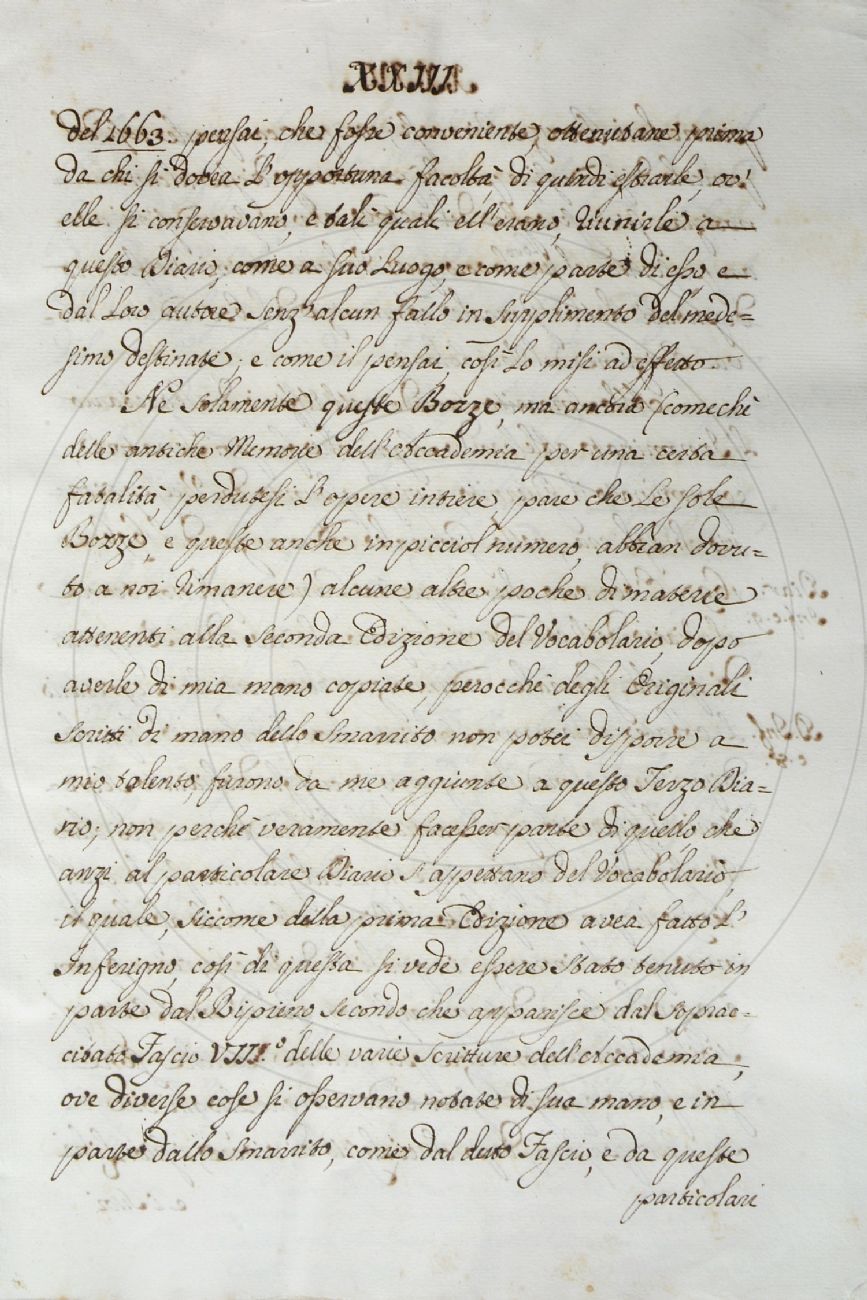 XXIII.
del 1663. pensai, che fosse conveniente, ottenutane prima
da chi si dovea l'opportuna facoltà, di quindi estrarle, ov'
elle si conservavano, e tali quali ell'erano, riunirle a
questo Diario, come a suo Luogo, e come parte di esso, e
dal Loro autore senz'alcun fallo in supplimento del mede=
simo destinate; e come il pensai, così Lo misi ad effetto.
Ne solamente queste Bozze, ma ancora (comechè
delle antiche Memorie dell'Accademia per una certa
fatalità, perdutesi l'opere intiere, pare che Le sole
Bozze, e queste anche in picciol numero, abbian dovu=
to a noi rimanere) alcune altre poche di materie
attenenti alla seconda Edizione del Vocabolario, dopo
averle di mia mano copiate, perocchè degli Originali
scritti di mano dello Smarrito non potei disporre a
mio talento, furono da me aggiunte a questo Terzo Dia=
rio; non perchè veramente facesser parte di quello, che
anzi al particolare Diario s'aspettano del Vocabolario,
il quale, siccome della prima Edizione avea fatto l'
Inferigno, così di questa si vede essere stato tenuto in
parte dal Ripieno secondo che apparisce dal soprac=
citato Fascio VIII.º delle varie Scritture dell'Accademia,
ove diverse cose si osservano notate di sua mano, e in
parte dallo Smarrito, come dal detto Fascio, e da queste
particolari